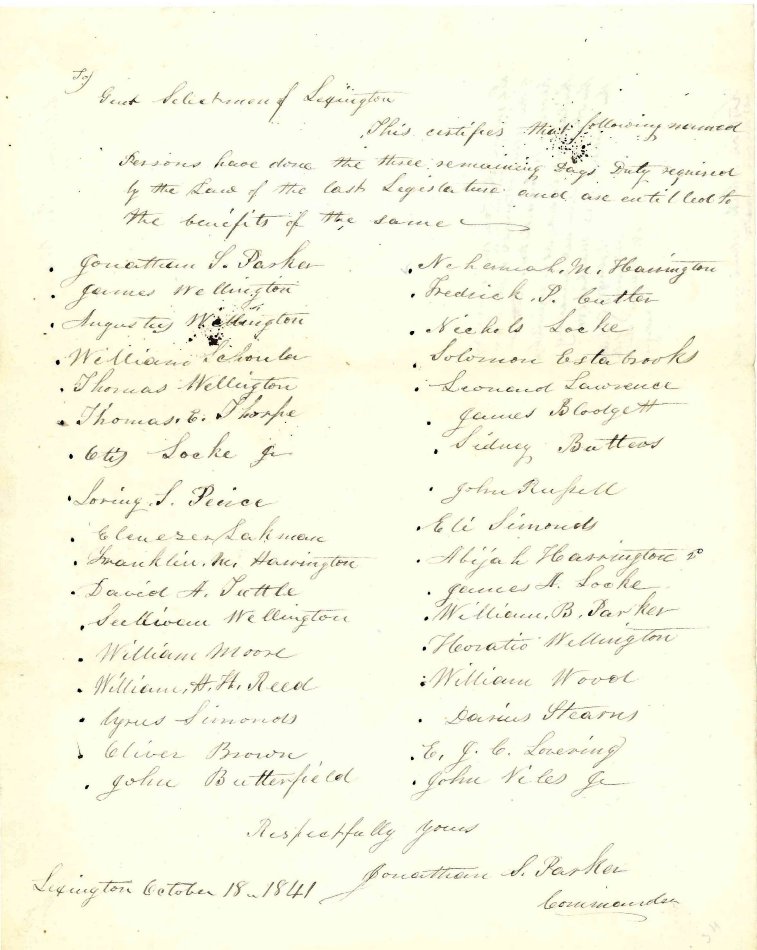 To
Gent Selectmen of Lexington
This certifies that following named
Persons have done the three remaining Days Duty required
by the Law of the last Legislature and are entitled to
the benefits of the same
Jonathan S. Parker
James Wellington
Augustus Wellington
William Schouler
Thomas Wellington
Thomas. E. Thorpe
Otis Locke Jr
Loring. S. Peirce
Ebenezer Lakman
Franklin. M. Harrington
David A. Tuttle
Sullivan Wellington
William Moore
William. H. H. Reed
Cyrus Simonds
Oliver Brown
John Butterfield
Nehemiah. M. Harrington
Fredrick. P. Cutler
Nichols Locke
Solomon Estabrooks
Leonard Lawrence
James Blodgett
Sidney Butters
John Russell
Eli Simonds
Abijah Harrington 2º
James A. Locke
William. B. Parker
Horatio Wellington
William Wood
Darius Stearns
E. J. C. Lovering
John Niles Jr
Respectfully yours
Jonathan S. Parker
Lexington October 18 - 1841
Commander